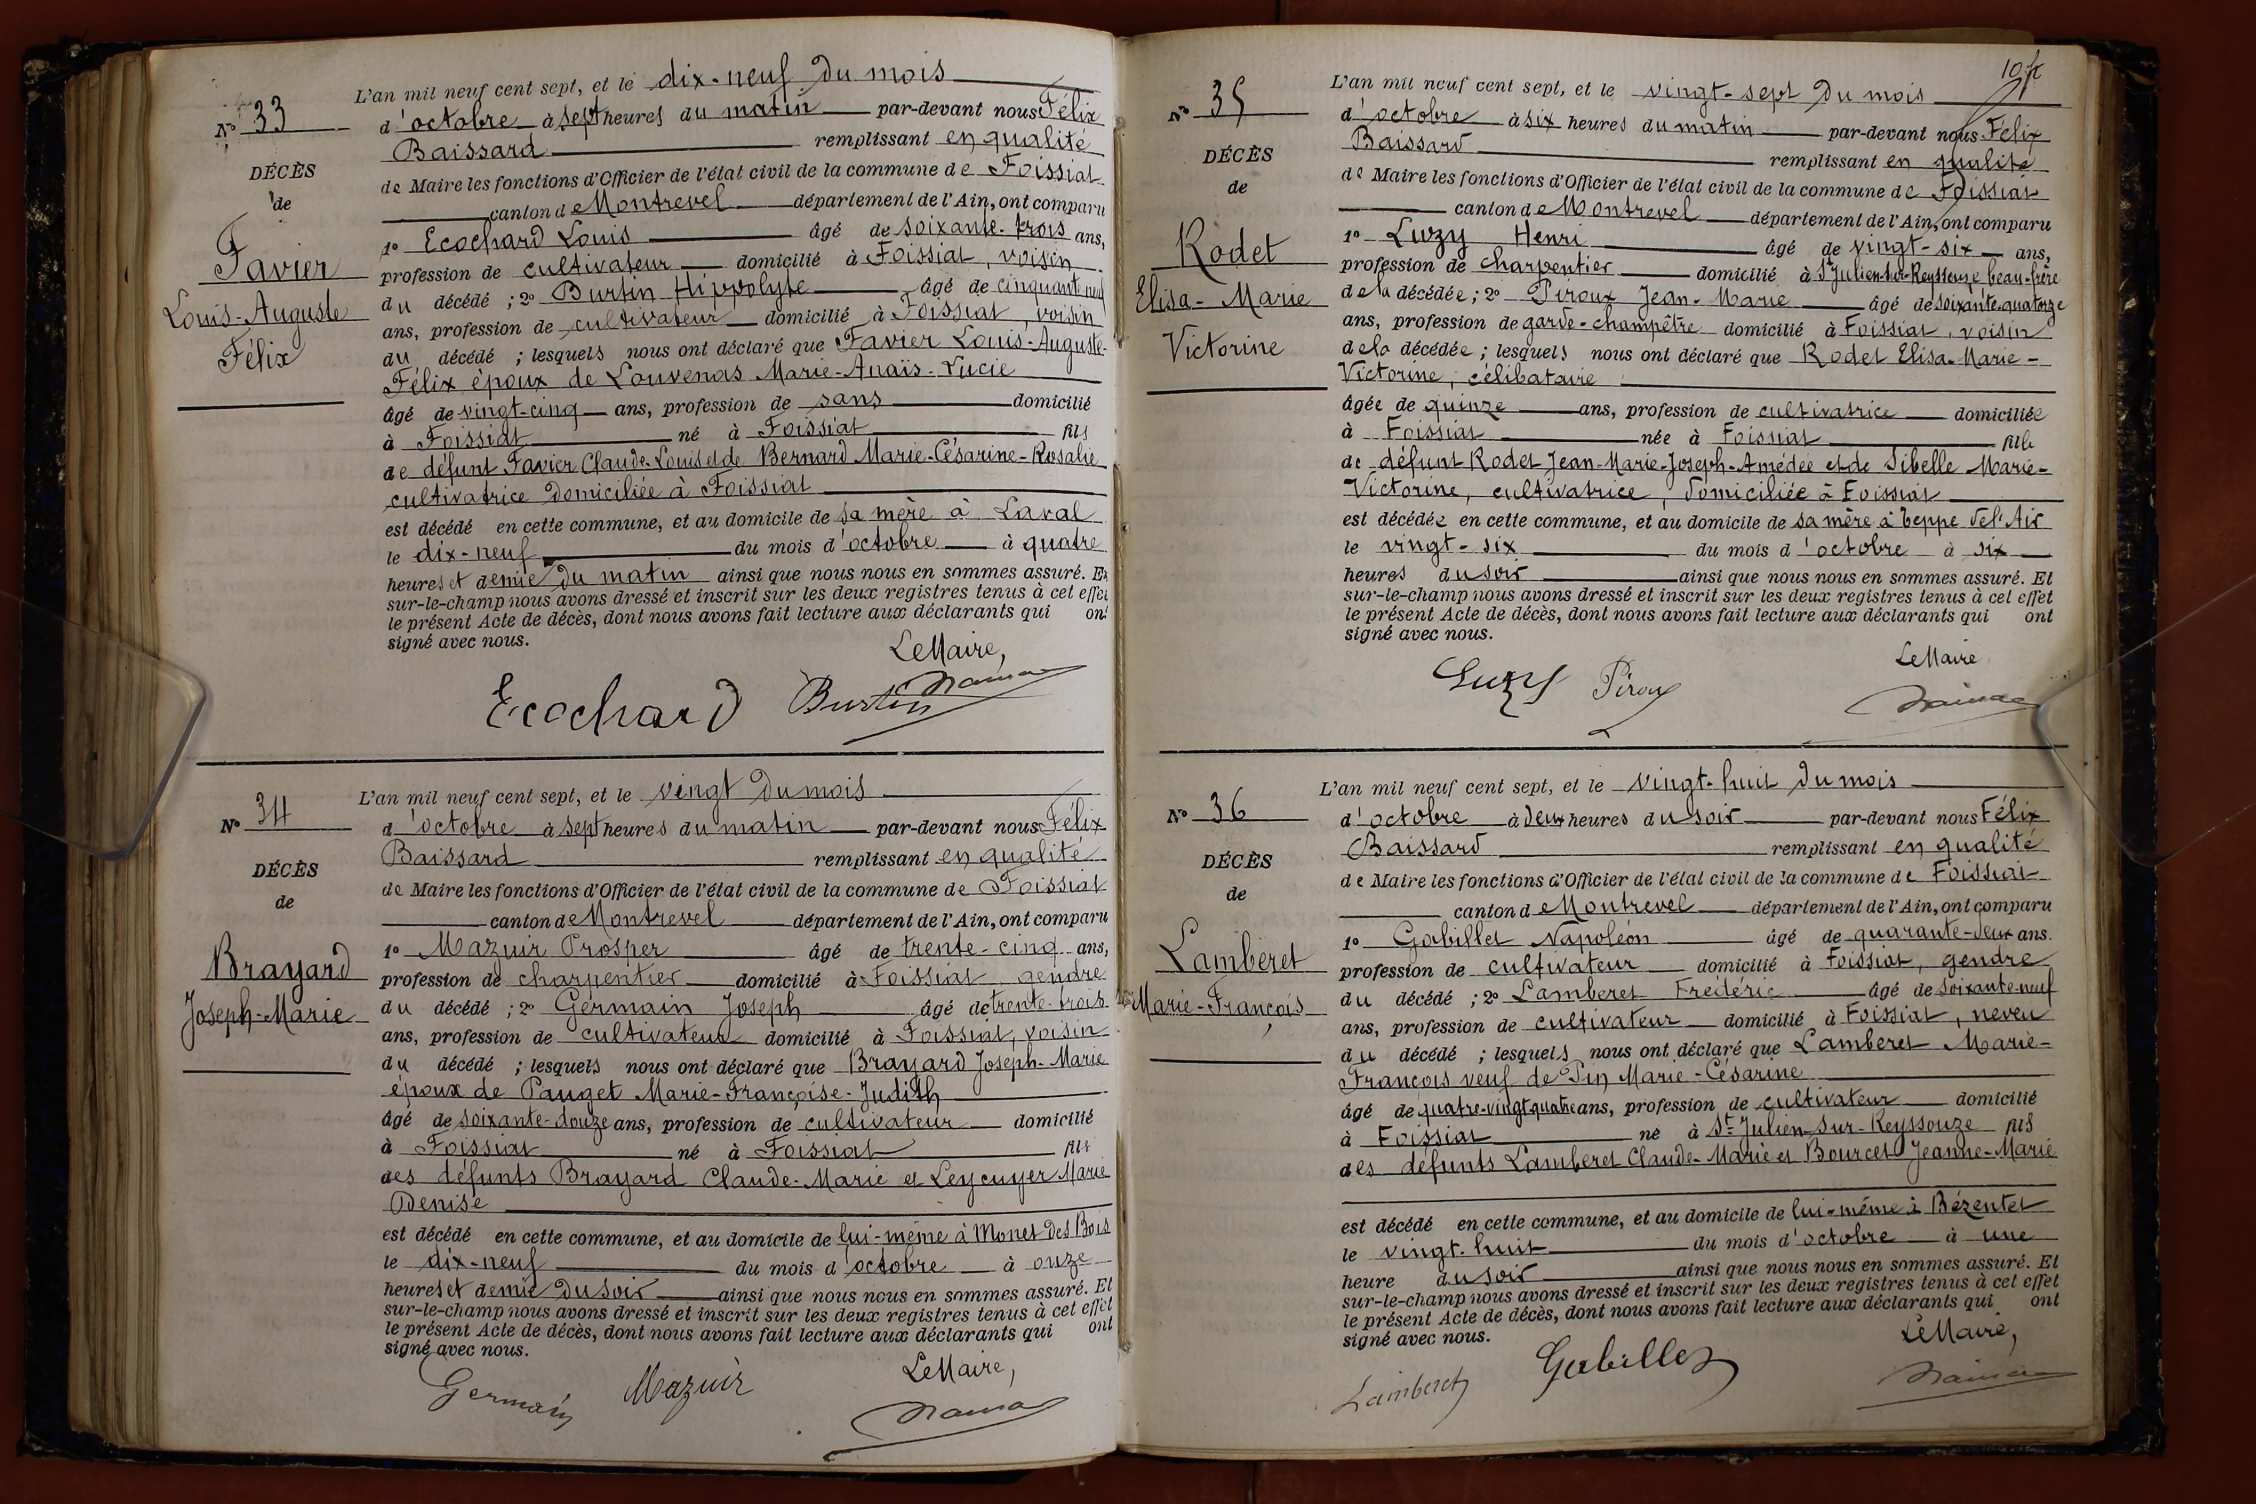 L'an mil neuf cent sept, et le dix-neuf du mois
N° 33
d'octobre à sept heures du matin par-devant nous Félix
Baissard remplissant en qualité
DÉCÈS
de Maire les fonctions d'Officier de l'état civil de la commune de Foissiat
de
canton de Montrevel département de l'Ain, ont comparu
1° Ecochard Louis âgé de soixante-trois ans,
Favier
profession de cultivateur domicilié à Foissiat, voisin
du décédé ; 2° Burtin Hippolyte âgé de cinquante-neuf
Louis-Auguste
ans, profession de cultivateur domicilié à Foissiat, voisin
Félix
du décédé ; lesquels nous ont déclaré que Favier Louis-Auguste-
Félix époux de Louvenas Marie-Anaïs-Lucie
âgé de vingt-cinq ans, profession de sans domicilié
à Foissiat né à Foissiat fils
de défunt Favier Claude-Louis et de Bernard Marie-Césarine-Rosalie
cultivatrice domiciliée à Foissiat
est décédé en cette commune, et au domicile de sa mère à Laval
le dix-neuf du mois d'octobre à quatre
heures et demie du matin ainsi que nous nous en sommes assuré. Et
sur-le-champ nous avons dressé et inscrit sur les deux registres tenus à cet effet
le présent Acte de décès, dont nous avons fait lecture aux déclarants qui ont
signé avec nous.
Le Maire,
Ecochard Burtin
L'an mil neuf cent sept, et le vingt du mois
N° 34
d'octobre à sept heures du matin par-devant nous Félix
Baissard remplissant en qualité
DÉCÈS
de Maire les fonctions d'Officier de l'état civil de la commune de Foissiat
de
canton de Montrevel département de l'Ain, ont comparu
1° Mazuir Prosper âgé de trente-cinq ans,
Brayard
profession de charpentier domicilié à Foissiat gendre
du décédé ; 2° Germain Joseph âgé de trente-trois
Joseph-Marie
ans, profession de cultivateur domicilié à Foissiat, voisin
du décédé ; lesquels nous ont déclaré que Brayard Joseph-Marie
époux de Pauget Marie-Françoise-Judith
âgé de soixante-douze ans, profession de cultivateur domicilié
à Foissiat né à Foissiat fils
des défunts Brayard Claude-Marie et Leycuyer Marie
Denise
est décédé en cette commune, et au domicile de lui-même à Monet des Bois
le dix-neuf du mois d'octobre à onze
heures et demie du soir ainsi que nous nous en sommes assuré. Et
sur-le-champ nous avons dressé et inscrit sur les deux registres tenus à cet effet
le présent Acte de décès, dont nous avons fait lecture aux déclarants qui ont
signé avec nous.
Le Maire,
Germain Mazuir
L'an mil neuf cent sept, et le vingt-sept du mois
N° 35
d'octobre à six heures du matin par-devant nous Félix
Baissard remplissant en qualité
DÉCÈS
de Maire les fonctions d'Officier de l'état civil de la commune de Foissiat
de
canton de Montrevel département de l'Ain, ont comparu
1° Luzy Henri âgé de vingt-six ans,
Rodet
profession de charpentier domicilié à St Julien-sur-Reyssouze beau-frère
Elisa-Marie
de la décédée ; 2° Piroux Jean-Marie âgé de soixante-quatorze
ans, profession de garde-champêtre domicilié à Foissiat, voisin
Victorine
de la décédée ; lesquels nous ont déclaré que Rodet Elisa-Marie-
Victorine, célibataire
âgée de quinze ans, profession de cultivatrice domiciliée
à Foissiat née à Foissiat fille
de défunt Rodet Jean-Marie-Joseph-Amédée et de Sibelle Marie-
Victorine, cultivatrice, domiciliée à Foissiat
est décédée en cette commune, et au domicile de sa mère à Teppe del'Air
le vingt-six du mois d'octobre à six
heures du soir ainsi que nous nous en sommes assuré. Et
sur-le-champ nous avons dressé et inscrit sur les deux registres tenus à cet effet
le présent Acte de décès, dont nous avons fait lecture aux déclarants qui ont
signé avec nous.
Le Maire
Luzy Piroux
L'an mil neuf cent sept, et le vingt-huit du mois
N° 36
d'octobre à deux heures du soir par-devant nous Félix
Baissard remplissant en qualité
DÉCÈS
de Maire les fonctions d'Officier de l'état civil de la commune de Foissiat
de
canton de Montrevel département de l'Ain, ont comparu
1° Gabillet Napoléon âgé de quarante-deux ans.
Lamberet
profession de cultivateur domicilié à Foissiat, gendre
Marie-François
du décédé ; 2° Lamberet Frédéric âgé de soixante-neuf
ans, profession de cultivateur domicilié à Foissiat, neveu
du décédé ; lesquels nous ont déclaré que Lamberet Marie-
François veuf de Pin Marie-Césarine
âgé de quatre-vingt-quatre ans, profession de cultivateur domicilié
à Foissiat né à St Julien-sur-Reyssouze fils
des défunts Lamberet Claude-Marie et Bourcet Jeanne-Marie
est décédé en cette commune, et au domicile de lui-même à Bézentet
le vingt-huit du mois d'octobre à une
heure du soir ainsi que nous nous en sommes assuré. Et
sur-le-champ nous avons dressé et inscrit sur les deux registres tenus à cet effet
le présent Acte de décès, dont nous avons fait lecture aux déclarants qui ont
signé avec nous.
Le Maire,
Lamberet Gabillet